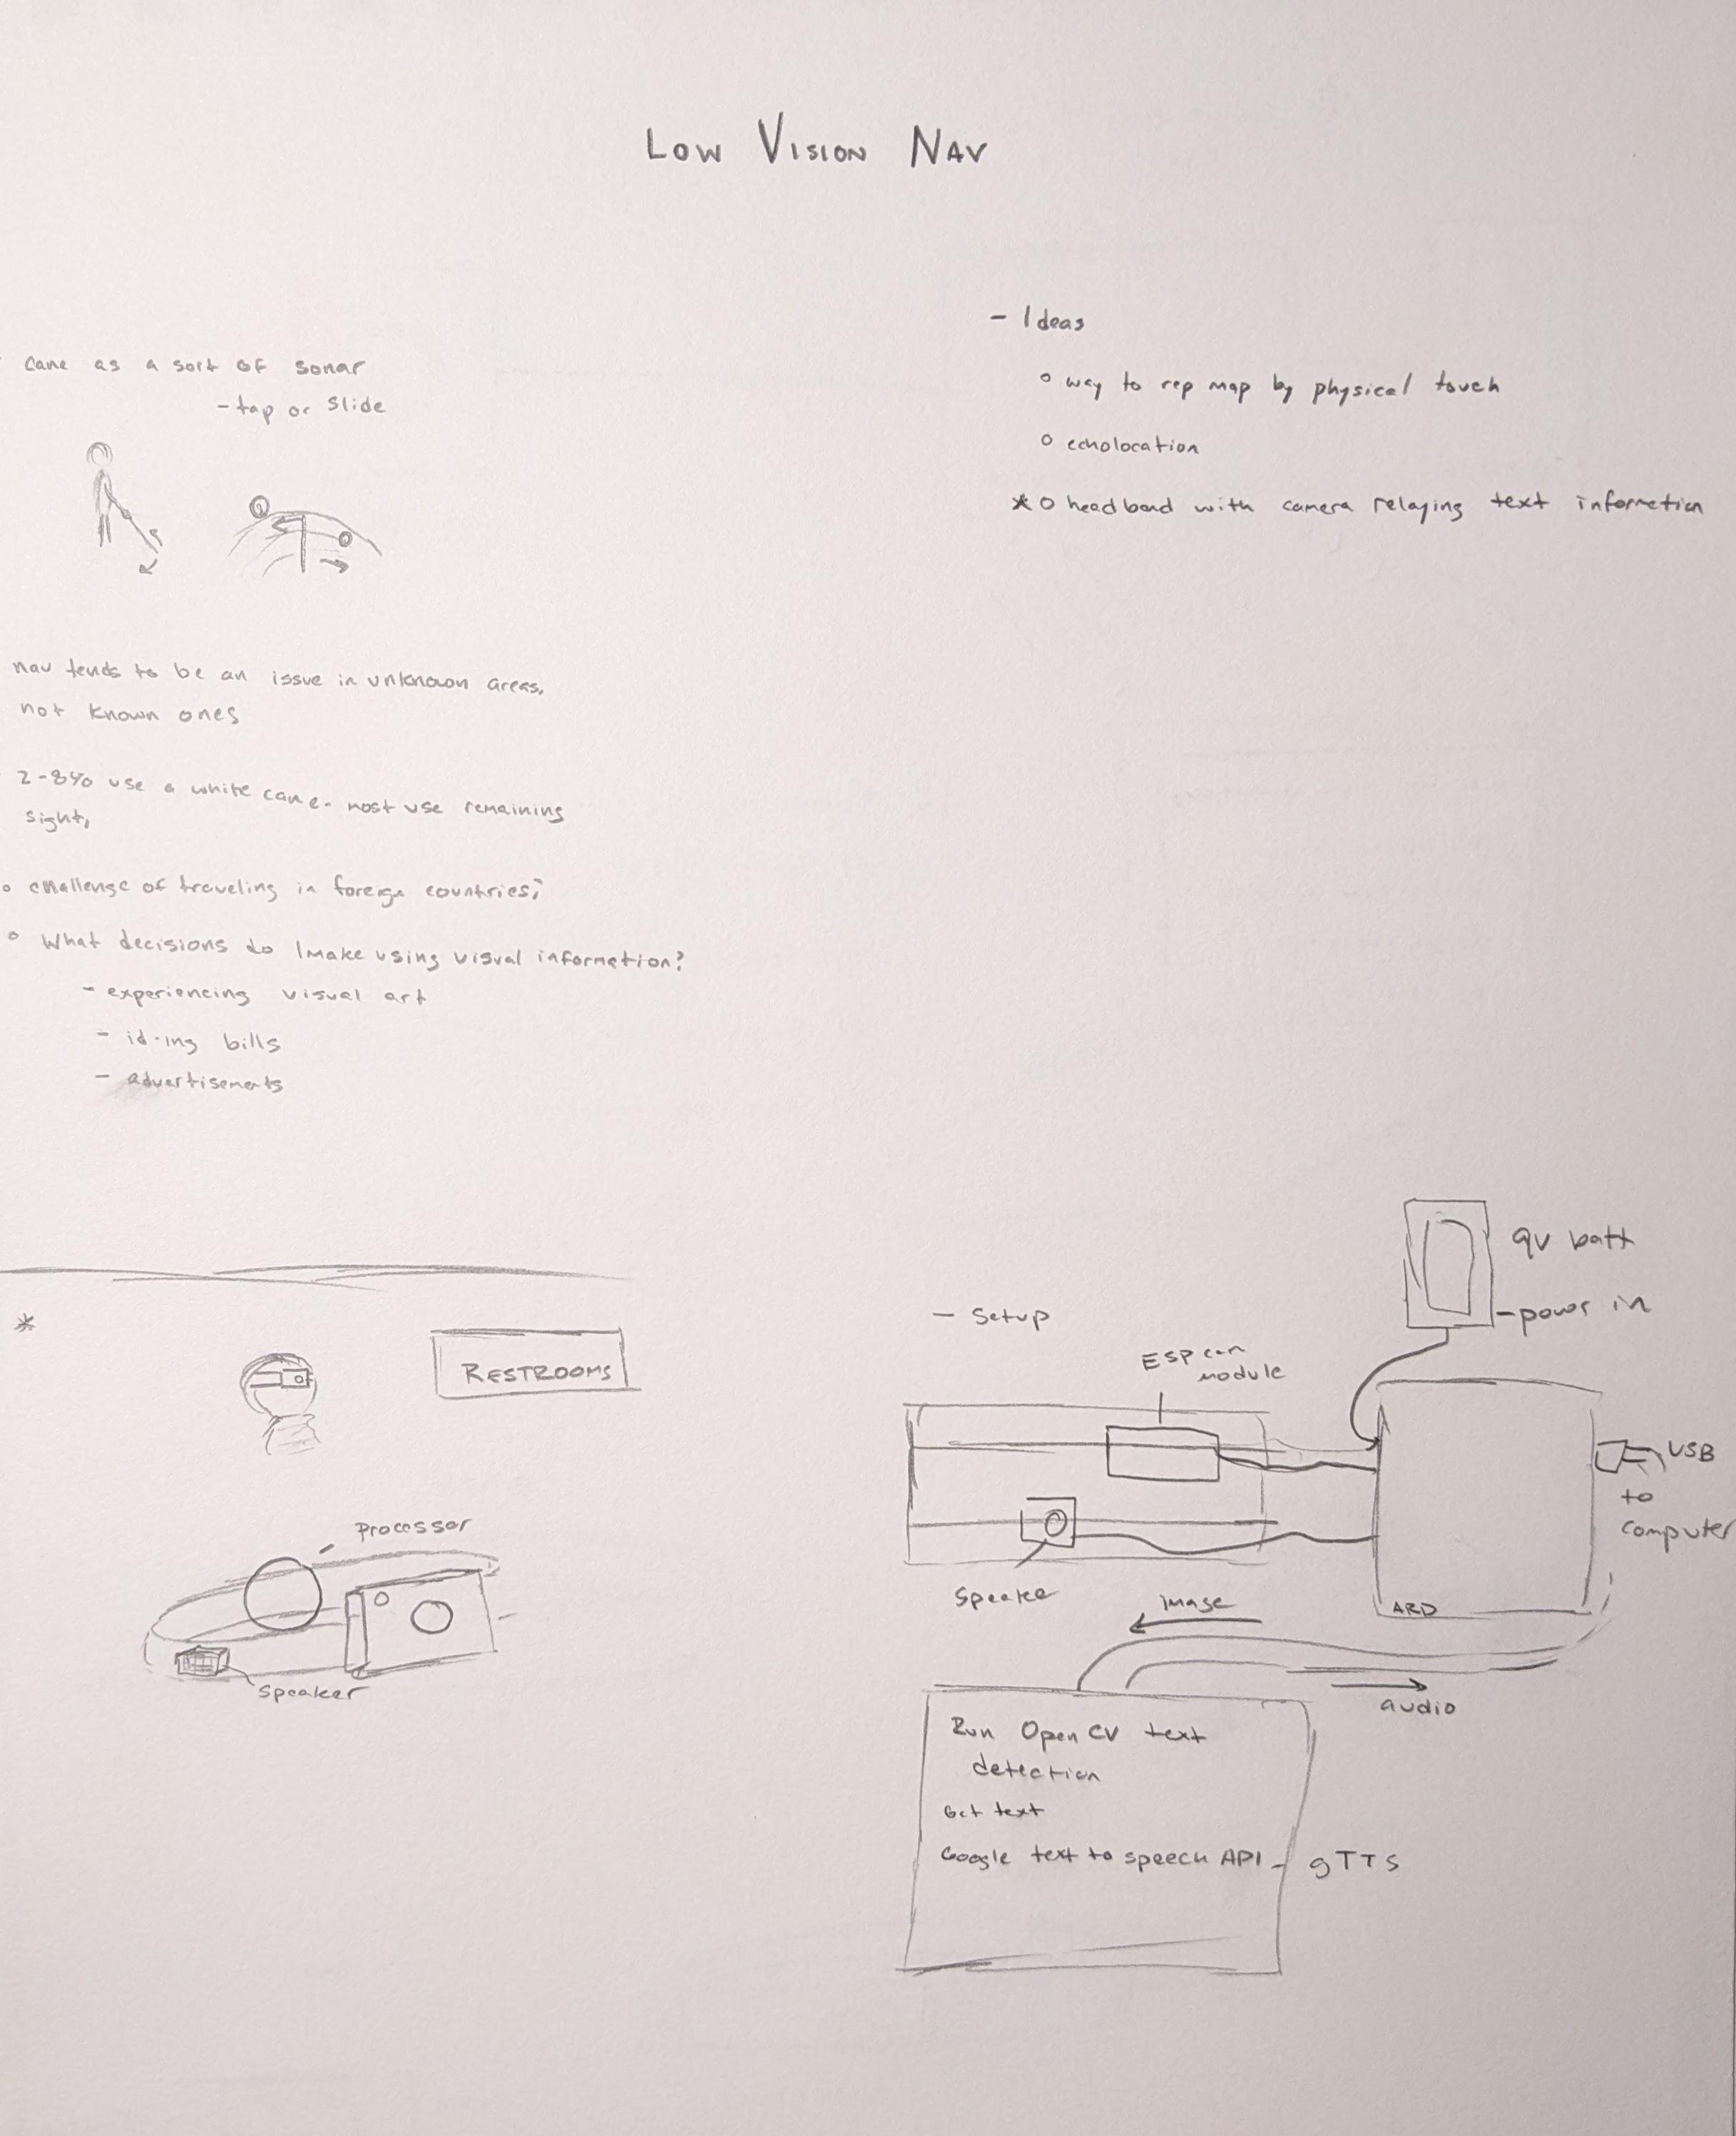 LOW VISION NAV
cane as a sort of sonar
- tap or slide
nav tends to be an issue in unknown areas,
not known ones
2-8% use a white cane - most use remaining
sight,
o challenge of traveling in foreign countries;
o What decisions do I make using visual information?
- experiencing visual art
- id-ing bills
- advertisements
- Ideas
o way to rep map by physical touch
o echolocation
* o headband with camera relaying text information
*
RESTROOMS
Processor
Speaker
- Setup
9V batt
- power in
ESP cam
module
USB
to
computer
Speaker
ARD
image
audio
Run OpenCV text
detection
Get text
Google text to speech API - gTTS